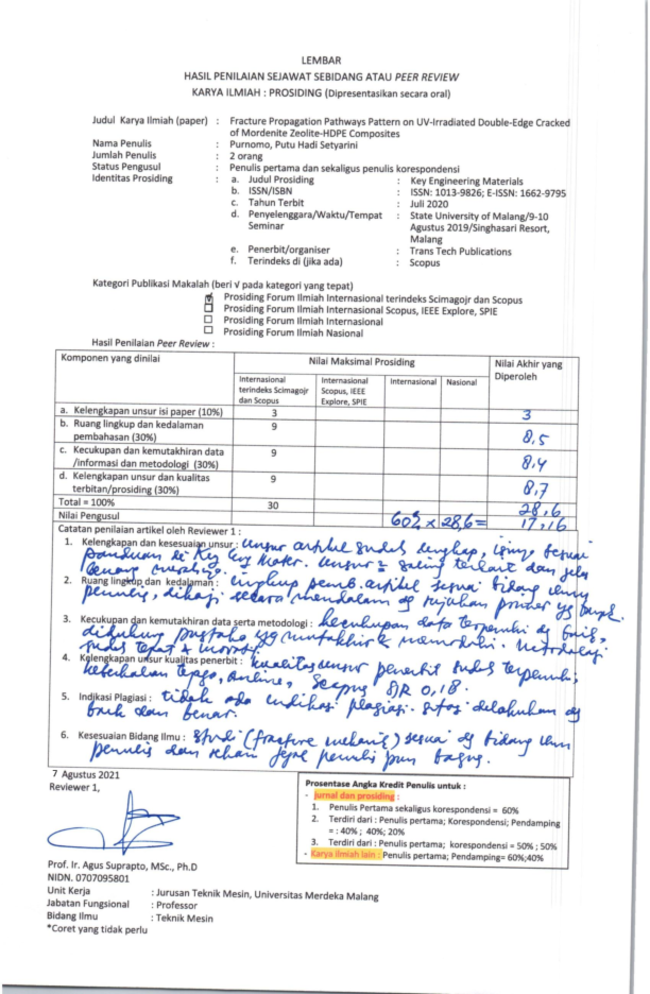 LEMBAR
HASIL PENILAIAN SEJAWAT SEBIDANG ATAU PEER REVIEW
KARYA ILMIAH : PROSIDING (Dipresentasikan secara oral)
Judul Karya Ilmiah (paper) : Fracture Propagation Pathways Pattern on UV-Irradiated Double-Edge Cracked
of Mordenite Zeolite-HDPE Composites
Nama Penulis : Purnomo, Putu Hadi Setyarini
Jumlah Penulis : 2 orang
Status Pengusul : Penulis pertama dan sekaligus penulis korespondensi
Identitas Prosiding : a. Judul Prosiding : Key Engineering Materials
b. ISSN/ISBN : ISSN: 1013-9826; E-ISSN: 1662-9795
c. Tahun Terbit : Juli 2020
d. Penyelenggara/Waktu/Tempat : State University of Malang/9-10
Seminar Agustus 2019/Singhasari Resort,
Malang
e. Penerbit/organiser : Trans Tech Publications
f. Terindeks di (jika ada) : Scopus
Kategori Publikasi Makalah (beri √ pada kategori yang tepat)
Prosiding Forum Ilmiah Internasional terindeks Scimagojr dan Scopus
Prosiding Forum Ilmiah Internasional Scopus, IEEE Explore, SPIE
Prosiding Forum Ilmiah Internasional
Prosiding Forum Ilmiah Nasional
Hasil Penilaian Peer Review :
Komponen yang dinilai Nilai Maksimal Prosiding Nilai Akhir yang
Diperoleh
Internasional Internasional Internasional Nasional
terindeks Scimagojr Scopus, IEEE
dan Scopus Explore, SPIE
a. Kelengkapan unsur isi paper (10%) 3 3
b. Ruang lingkup dan kedalaman 9
pembahasan (30%) 8,5
c. Kecukupan dan kemutakhiran data 9
/informasi dan metodologi (30%) 8,4
d. Kelengkapan unsur dan kualitas 9
terbitan/prosiding (30%) 8,7
Total = 100% 30 28,6
Nilai Pengusul 60% x 28,6 = 17,16
Catatan penilaian artikel oleh Reviewer 1 :
1. Kelengkapan dan kesesuaian unsur : unsur artikel sudah lengkap, isinya sesuai
panduan di Key Eng Mater. unsur2 saling terkait dan jelas
benang
2. Ruang lingkup dan kedalaman : lingkup pemb. artikel sesuai bidang ilmu
penulis, dikaji secara mendalam dg rujukan primer yg
3. Kecukupan dan kemutakhiran data serta metodologi : kecukupan data terpenuhi dg baik,
didukung pustaka yg mutakhir & memadai. metodologi
sudah tepat &
4. Kelengkapan unsur kualitas penerbit : kualitas unsur penerbit sudah terpenuhi,
online, Scopus SJR 0,18.
5. Indikasi Plagiasi : tidak ada indikasi plagiasi. sitasi dilakukan dg
baik dan benar.
6. Kesesuaian Bidang Ilmu : Studi (fracture mekanik) sesuai dg bidang ilmu
penulis dan penulis pun bagus.
7 Agustus 2021
Reviewer 1,
Prosentase Angka Kredit Penulis untuk :
- Jurnal dan prosiding :
1. Penulis Pertama sekaligus korespondensi = 60%
2. Terdiri dari : Penulis pertama; Korespondensi; Pendamping
= : 40% ; 40%; 20%
3. Terdiri dari : Penulis pertama; korespondensi = 50% ; 50%
- Karya ilmiah lain : Penulis pertama; Pendamping= 60%;40%
Prof. Ir. Agus Suprapto, MSc., Ph.D
NIDN. 0707095801
Unit Kerja : Jurusan Teknik Mesin, Universitas Merdeka Malang
Jabatan Fungsional : Professor
Bidang Ilmu : Teknik Mesin
*Coret yang tidak perlu